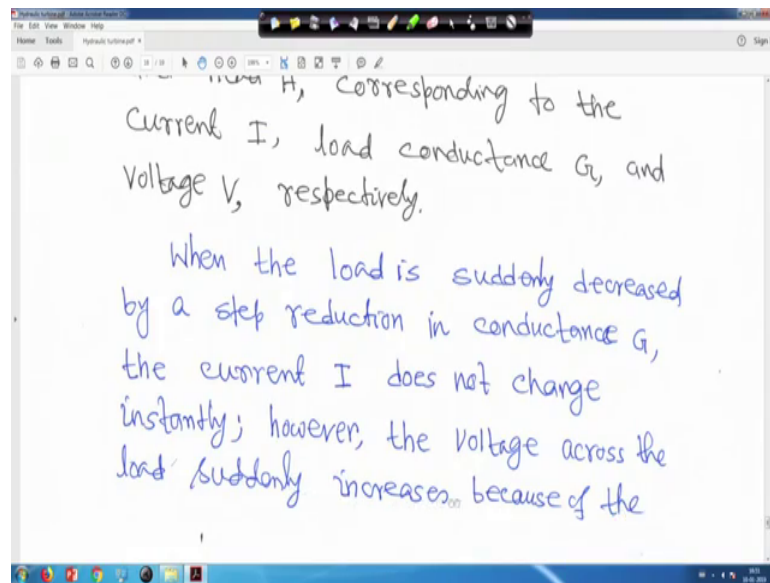 Hydraulic turbine.pdf - Adobe Acrobat Reader DC
File Edit View Window Help
Home Tools Hydraulic turbine.pdf × Sign
H, corresponding to the
current I, load conductance G, and
voltage V, respectively.
When the load is suddenly decreased
by a step reduction in conductance G,
the current I does not change
instantly; however, the voltage across the
load suddenly increases because of the